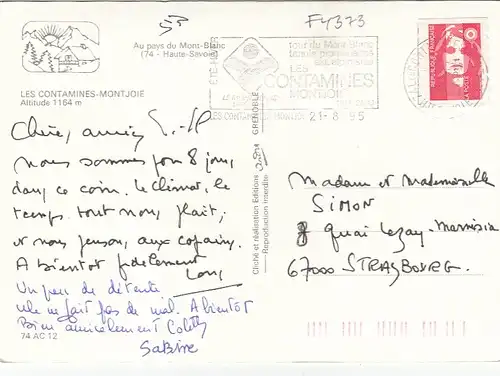 53
FY373
Au pays du Mont-Blanc
(74 - Haute-Savoie)
LES CONTAMINES-MONTJOIE
Altitude 1164 m
tour du Mont-Blanc
LES
CONTAMINES
MONTJOIE
LES CONTAMINES MONTJOIE
21-8 95
REPUBLIQUE FRANÇAISE
LA POSTE
Chère, amies
nous sommes pour 8 jours
dans ce coin. Le climat, le
temps tout nous plait,
et nous pensons aux copains.
A bientôt fidèlement
Un peu de détente
ne fait pas de mal. A bientôt
Bien amicalement Colette
Sabine
74 AC 12
GRENOBLE
Cliché et réalisation Editions
Reproduction interdite
Madame et Mademoiselle
SIMON
8 quai Lezay-Marnésia
67000 STRASBOURG.